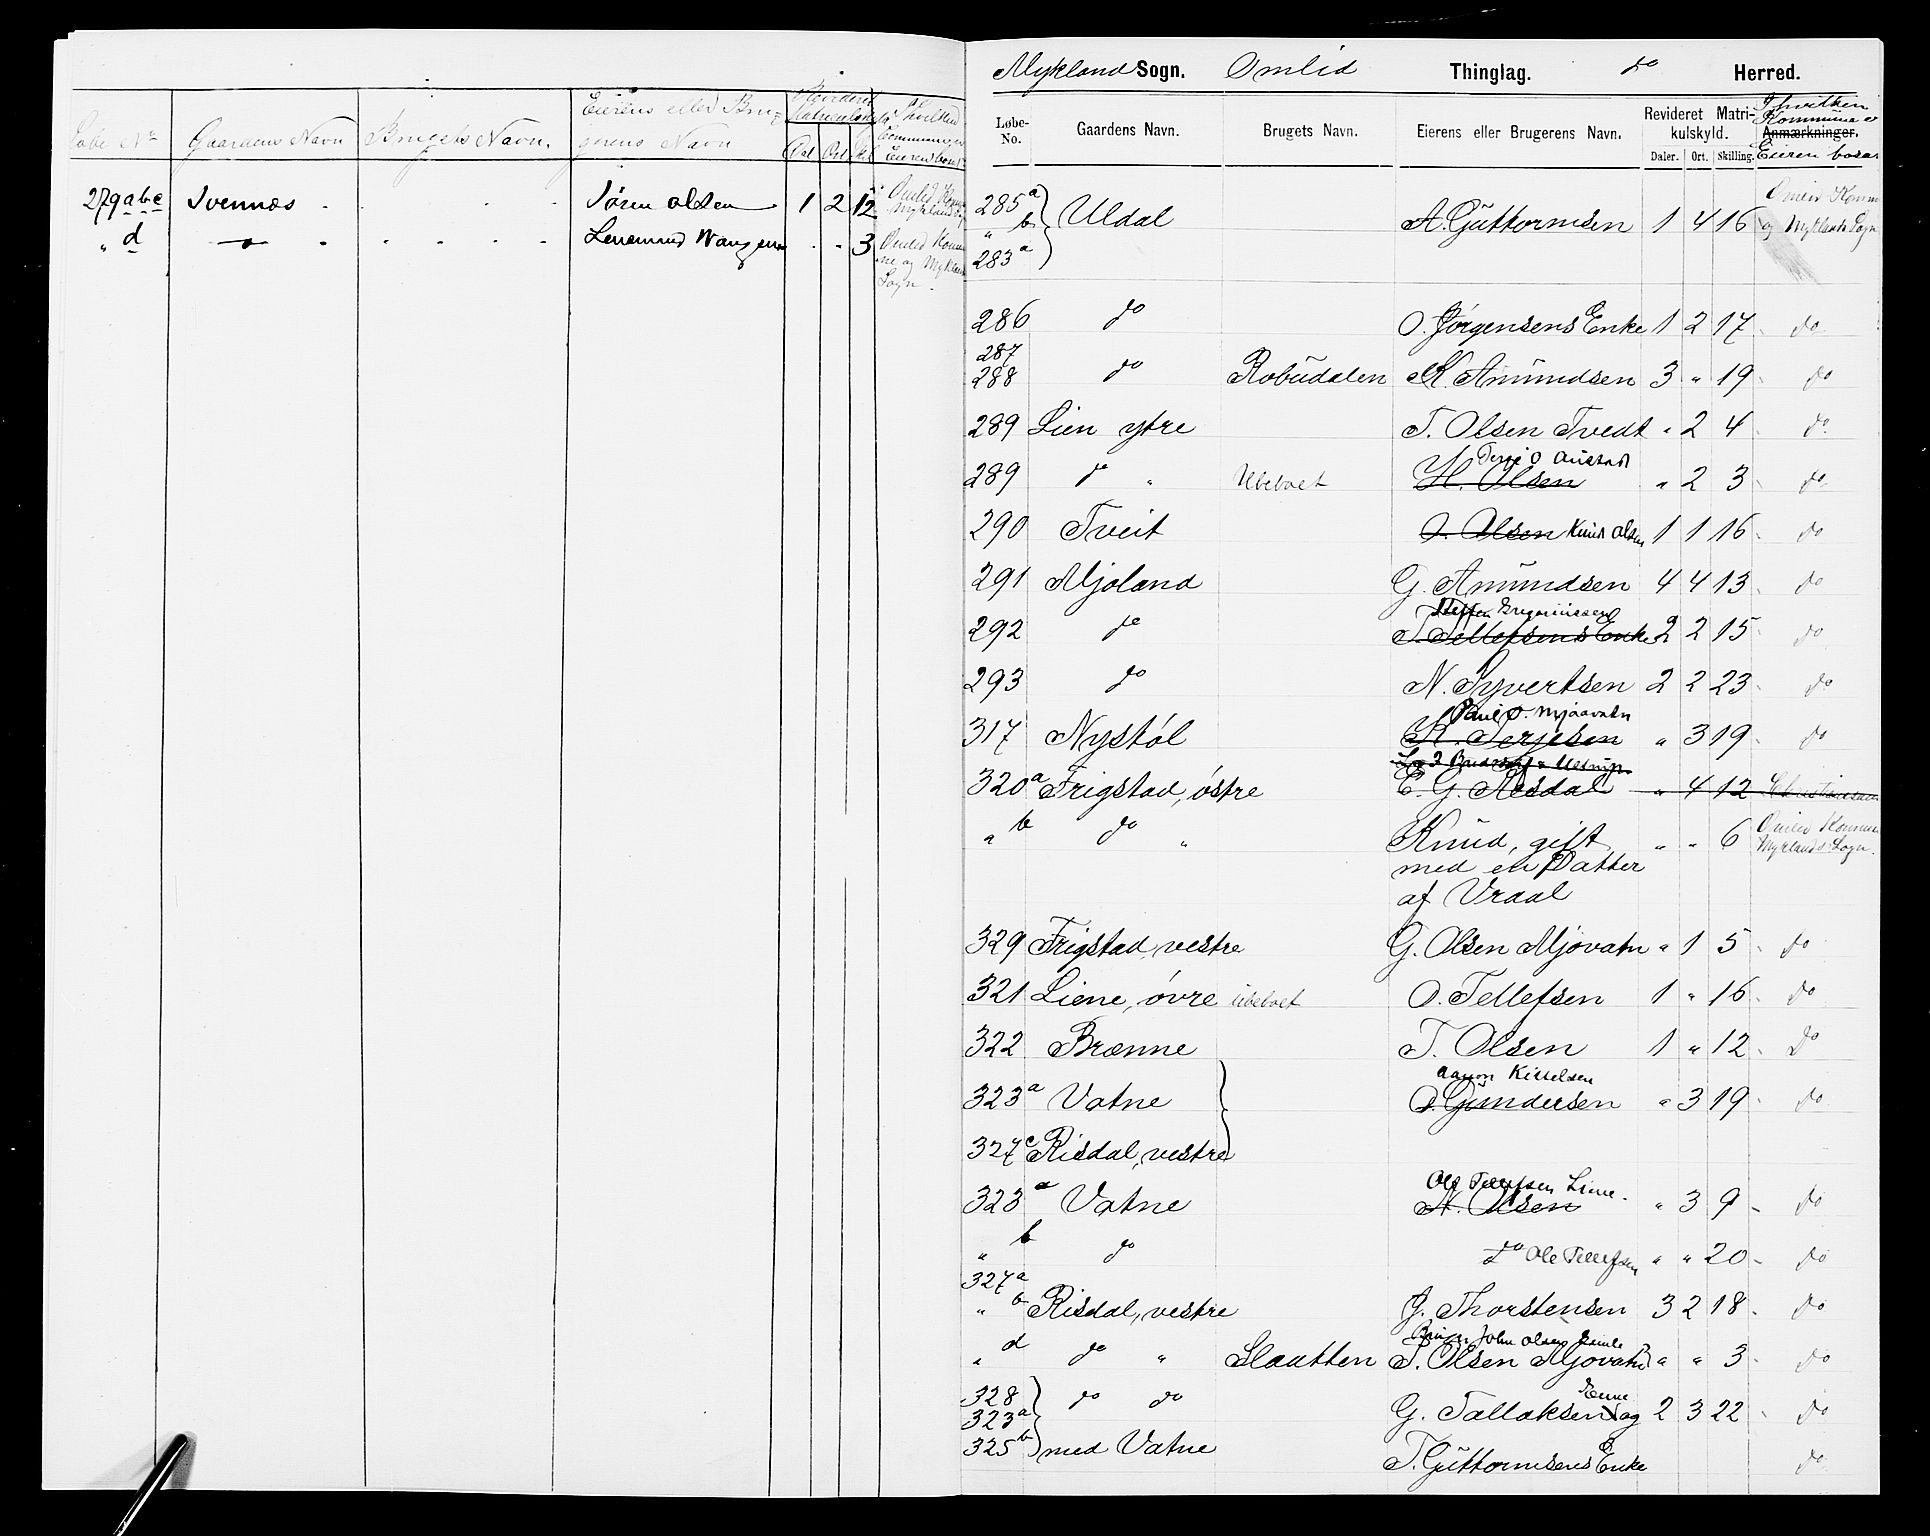 Løbe No Gaardens Navn Brugets Navn. Eierens eller Bru=
gerens Navn Revideret Matrikulskyld I hvilken Kommune er Eieren bosat
Dal Ort Sk
279 a b c Svennæs Søren Olsen 1 2 12 Omlid Kom
Mykland Sogn
" d do Lensmand 3 Omlid Kommu
ne og Mykland
Sogn.
Mykland Sogn. Omlid Thinglag. do Herred.
Løbe-
No. Gaardens Navn. Brugets Navn. Eierens eller Brugerens Navn. Revideret Matri-
kulskyld. I hvilken
Kommune er
Anmærkninger.
Eieren bosat
Daler. Ort. Skilling.
285 a
" b Uldal A. Guttormsen 1 4 16 Omlid Komm
og Myklands Sogn
283 a
286 do O. Jørgensens Enke 1 2 17 do
287
288 do Robudalen K. Amundsen 3 " 19 do
289 Lien ytre T. Olsen Tvedt " 2 4 do
Terje O Austad
289 do " Ubeboet H. Olsen " 2 3 do
290 Tveit O. Olsen Knud Olsen 1 1 16 do
291 Mjoland G. Amundsen 4 4 13 do
Steffen Gregoriussen
292 do T. Tellefsens Enke 2 2 15 do
293 do N. Syvertsen 2 2 23 do
Paul O. Mjaavatn
317 Nystøl K. Terjesen " 3 19 do
320 a Frigstad, østre E. G. Aasdal " 4 12 Christiansan
" b do " Knud, gift " " 6 Omlid Kommun
Myklands Sogn.
med en Datter
af Vraal
329 Frigstad, vestre G. Olsen Mjovatn " 1 5 do
321 Liene, øvre ubeboet O. Tellefsen 1 " 16 do
322 Brænne T. Olsen 1 " 12 Do
Aanon Kittelsen
323 a Vatne O. Gundersen " 3 19 do
327 c Risdal, vestre
Ole Tellefsen Liene
323 a Vatne A. Olsen " 3 9 do
" b do do Ole Tellefsen " " 20 do
327 a
" b Risdal, vestre G. Thorstensen 3 2 18 do
John Olsen
" d do " Slautten T. Olsen Mjovatn " " 3 do
328 do do Enke
323 a G. Tallaksen og 2 3 22 do
325 b med Vatne
T. Guttormsens Enke do